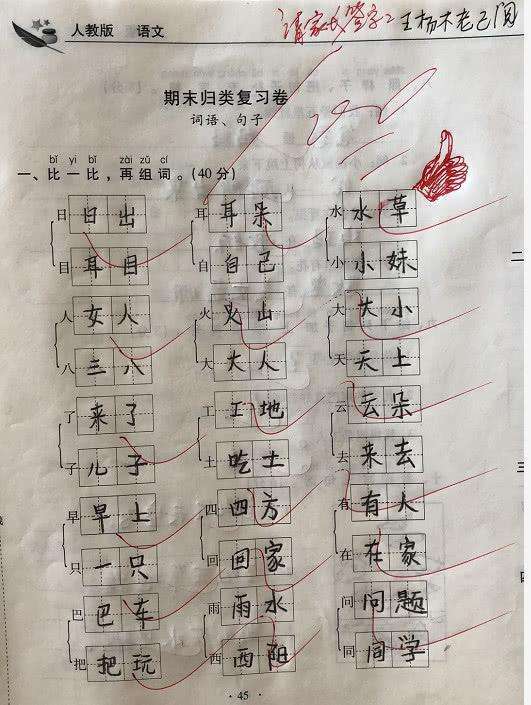 人教版 语文 请家长签字：
期末归类复习卷
词语、句子
bǐ yi bǐ zài zǔ cí
一、比一比，再组词。（40分）
日 日出 耳 耳朵 水 水草
目 耳目 自 自己 小 小妹
人 女人 火 火山 大 大小
八 三八 大 大人 天 天上
了 来了 工 工地 云 云朵
子 儿子 土 吃土 去 来去
早 早上 四 四方 有 有人
只 一只 回 回家 在 在家
巴 巴车 雨 雨水 问 问题
把 把玩 西 西阳 同 同学
· 45 ·